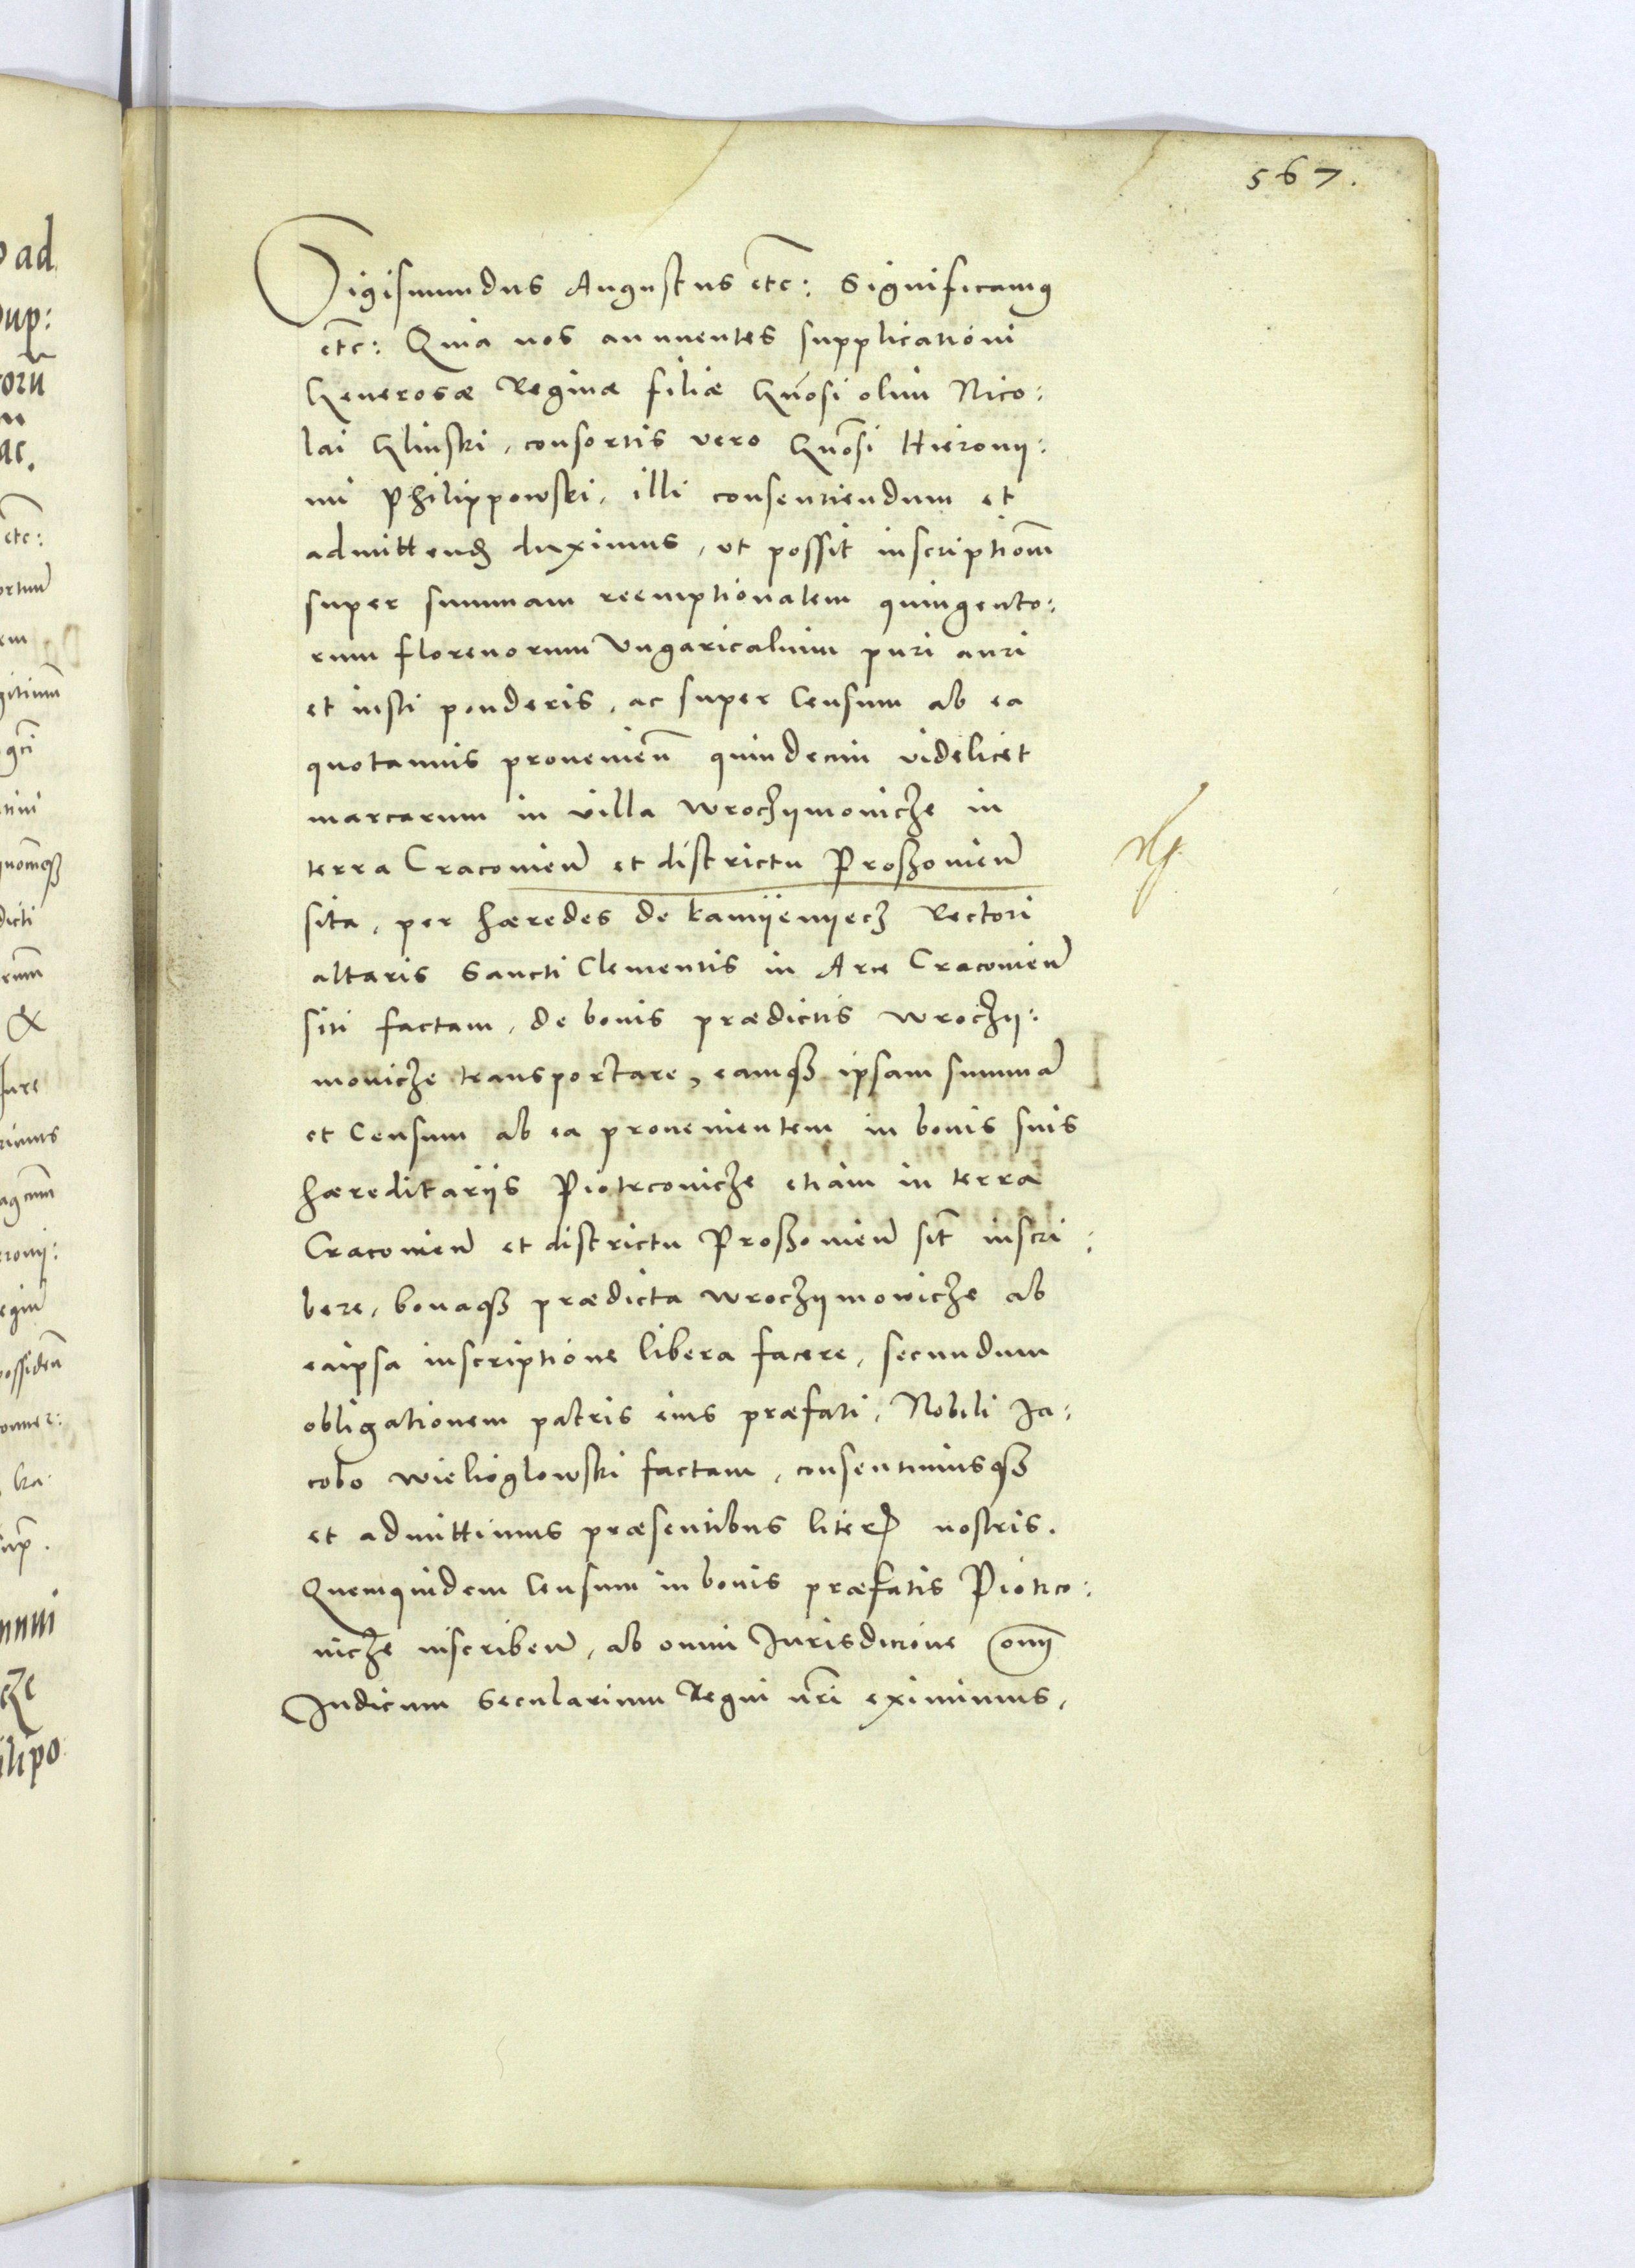 567.
Sigismundus Augustus etc: Significamus
etc: Quia nos annuentes supplicationi
Generosæ Reginæ filiæ Gnosi olim Nico:
lai Glinski, consortis vero Gnosi Hierony:
mi Philippowski, illi consentiendum et
admittend duximus, ut possit inscriptionem
super summam reemptionalem quingento:
rum florenorum Ungaricalium puri auri
et iusti ponderis, ac super Censum ab ea
quotannis provenien quindecim videlicet
marcarum in villa Wroczymowicze in
terra Cracovien et districtu Proszovien
sita, per hæredes de Kamyenyecz Rectori
altaris Sancti Clementis in Arce Cracovien
siti factam, de bonis prædictis Wroczy:
movicze transportare, eamque ipsam summa
et Censum ab ea provenientem in bonis suis
hæreditariis Piotrcovicze etiam in terra
Cracovien et districtu Proszovien sit inscri:
bere, bonaque prædicta Wroczymowicze ab
eaipsa inscriptione libera facere, secundum
obligationem patris eius præfati, Nobili Ja:
cobo Wielioglowski factam, consentimusque
et admittimus præsentibus literis nostris.
Quemquidem Censum in bonis præfatis Piotrco:
vicze inscriben, ab omni Jurisdicione omn
Judicum Secularium Regni nri eximimus,